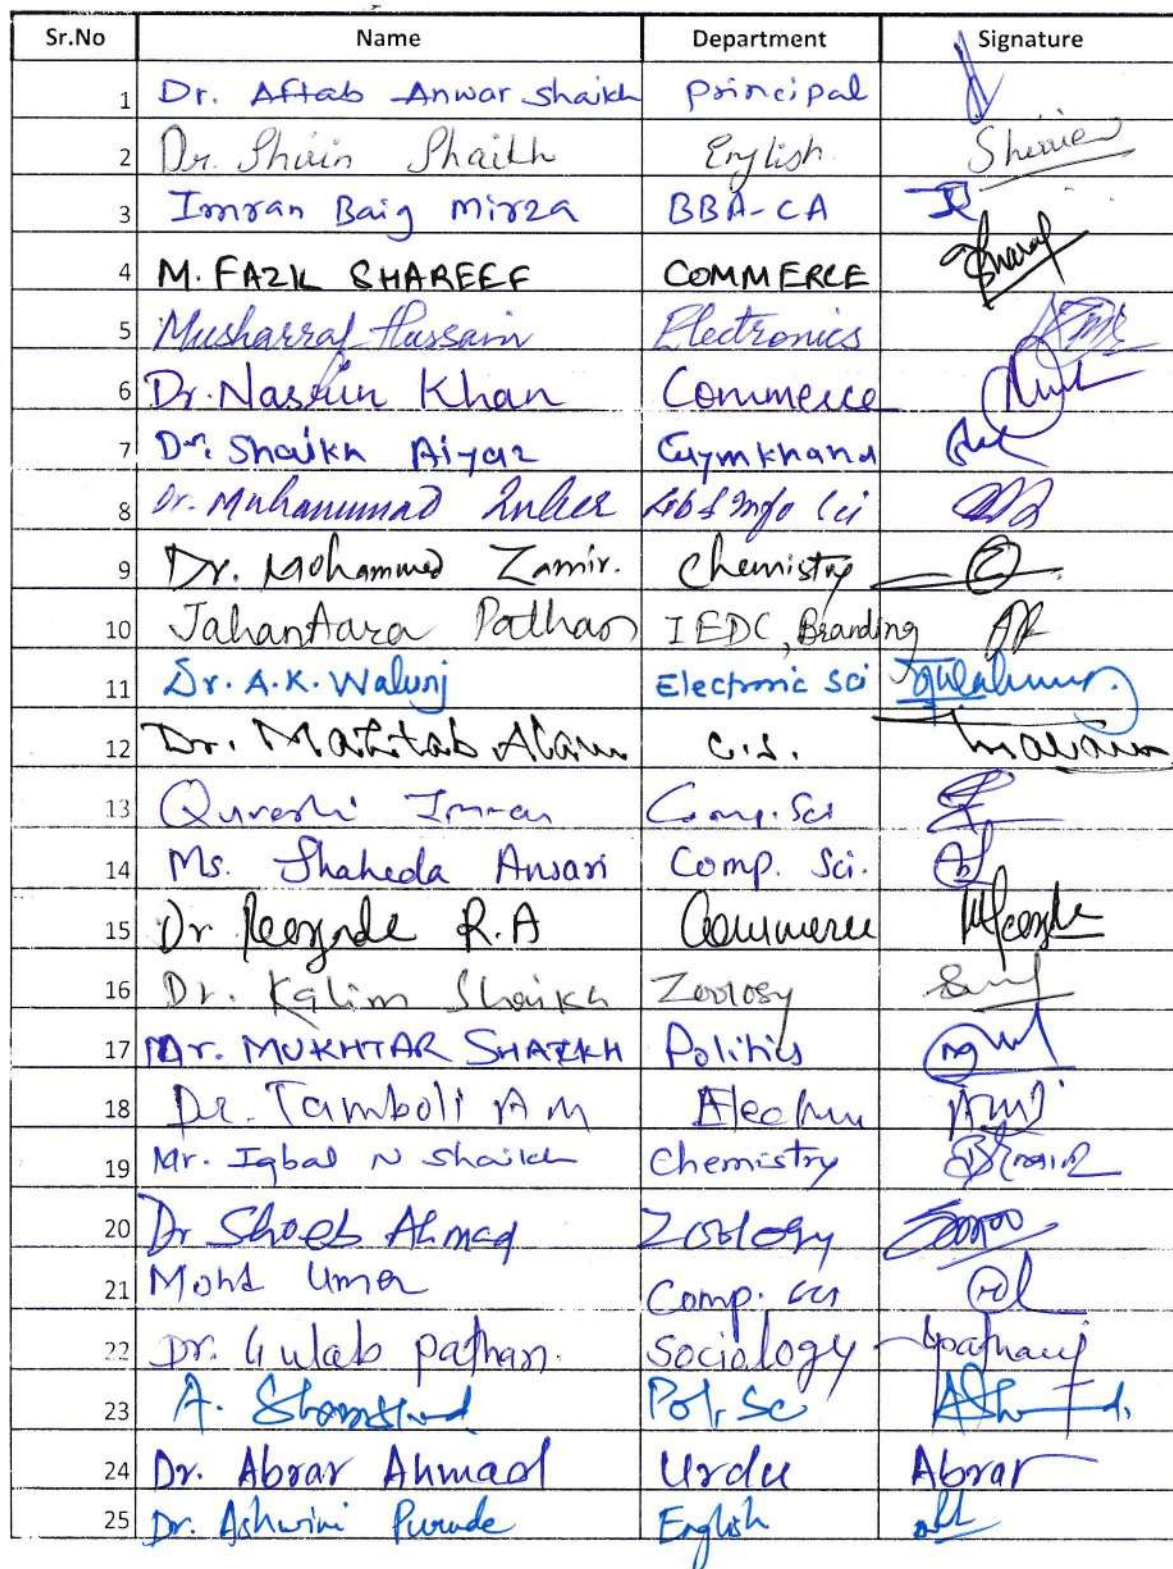 Sr.No Name Department Signature
1 Dr. Aftab Anwar Shaikh Principal
2 Dr. Shirin Shaikh English Shirien
3 Imran Baig Mirza BBA-CA
4 M. FAZIL SHAREEF COMMERCE
5 Musharraf Hussain Electronics
6 Dr. Nasrin Khan Commerce
7 Dr. Shaikh Aiyaz Gymkhana
8 Dr. Muhammad Lib & Info Sci
9 Dr. Mohammed Zamir. Chemistry
10 JahanAara Pathan IEDC, Branding
11 Dr. A.K. Walunj Electronic Sci
12 Dr. Mahtab Alam C.S.
13 Qureshi Imran Comp. Sci
14 Ms. Shaheda Ansari Comp. Sci.
15 Dr R.A Commerce
16 Dr. Kalim Shaikh Zoology
17 Mr. MUKHTAR SHAIKH Politics
18 Dr. Tamboli A M
19 Mr. Iqbal N Shaikh Chemistry
20 Dr Shoeb Ahmad Zoology
21 Mohd Umer Comp. sci
22 Dr. Gulab Pathan. Sociology gpathan
23 A. Pol. Sc
24 Dr. Abrar Ahmad Urdu Abrar
25 Dr. Ashwini Purude English